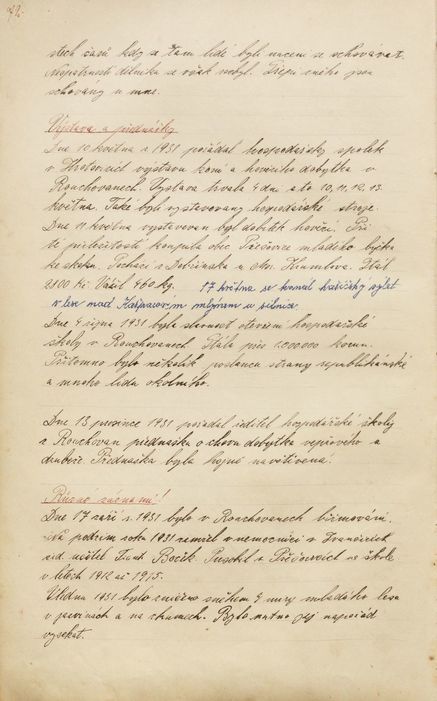 těch časů kdy se tam lidé byli nuceni se schovávat.
neopatrností dělníka se však nebyl.
schovány u mne.
Výstava a přednášky
Dne 10 května r 1931 pořádal hospodářský spolek
v Hrotovicích výstavu koní a hovězího dobytka v
Rouchovanech. Výstava trvala 4 dni a to 10, 11, 12, 13.
května. Také byly vystavovány hospodářské stroje.
Dne 11. května vystavován byl dobytek hovězí. Při
té příležitosti koupila obec Přešovice mladého býčka
ke skoku. Pochází z Dobřínska u Mor. Krumlova. Stál
2800 Kč Vážil 460 kg. 17 května se konal hasičský výlet
v lese nad Kašparovým mlýnem u silnice.
Dne 4 října 1931 bylo slavnost otevření hospodářské
školy v Rouchovanech. Stála přes 1.000.000 korun.
Přítomno bylo několik poslanců strany republikánské
a mnoho lidu okolního.
Dne 13 prosince 1931 pořádal ředitel hospodářské školy
z Rouchovan přednášku o chovu dobytka vepřového a
drůbeže. Přednáška byla hojně navštívena.
Různé záznamy!
Dne 17 září r. 1931 bylo v Rouchovanech biřmování.
Na podzim roku 1931 zemřel v nemocnici v Ivančicích
řid učitel Frant Bočík. Působil v Přešovicích ve škole
v letech 1912 až 1915.
V lednu 1931 bylo zničeno sněhem 4 míry mladého lesa
v a na chrumech. Bylo nutno jej napořád
vysekat.